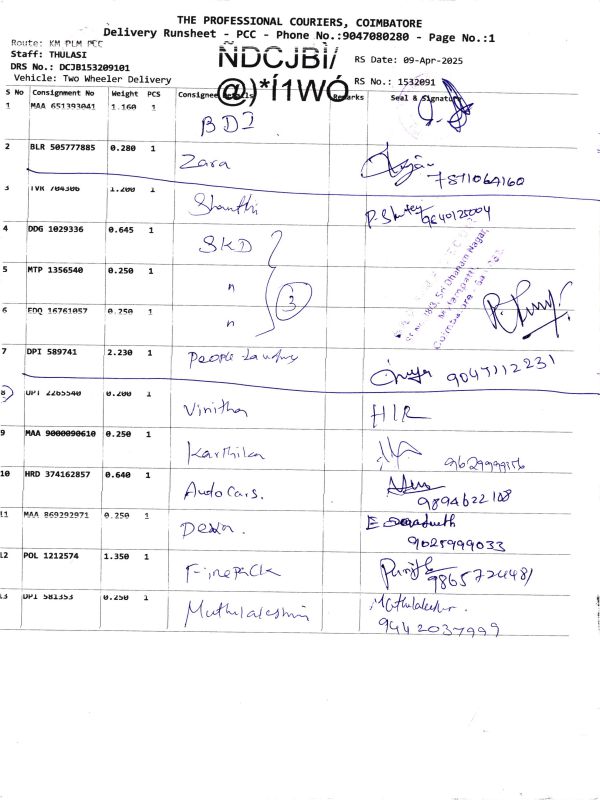 THE PROFESSIONAL COURIERS, COIMBATORE
Delivery Runsheet - PCC - Phone No.:9047080280 - Page No.:1
Route: KM PLM PCC
Staff: THULASI
DRS No.: DCJB153209101
Vehicle: Two Wheeler Delivery
ÑDCJBÌ/
@)*Í1WÓ
RS Date: 09-Apr-2025
RS No.: 1532091
S No Consignment No Weight PCS Consignee Details Remarks Seal & Signature
1 MAA 651393041 1.160 1 BDI
2 BLR 505777885 0.280 1 Zara 7871064160
3 TVR 704306 1.200 1 Shanthi 9840125004
4 DDG 1029336 0.645 1 SKD
5 MTP 1356540 0.250 1 "
6 EDQ 16761057 0.250 1 "
3
7 DPI 589741 2.230 1 People 9047112231
8 UPI 2265540 0.200 1 Vinitha H/R
9 MAA 9000090610 0.250 1 Karthika
10 HRD 374162857 0.640 1 Auto Cars. 9894622108
11 MAA 869292971 0.250 1 9025999033
12 POL 1212574 1.350 1 Firepack 9865772448/
13 DPI 581353 0.250 1 Muthulakshmi
9442037999